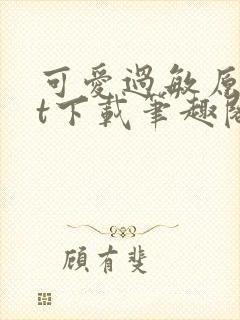 可愛過敏原
t下載筆趣閣
顧有斐